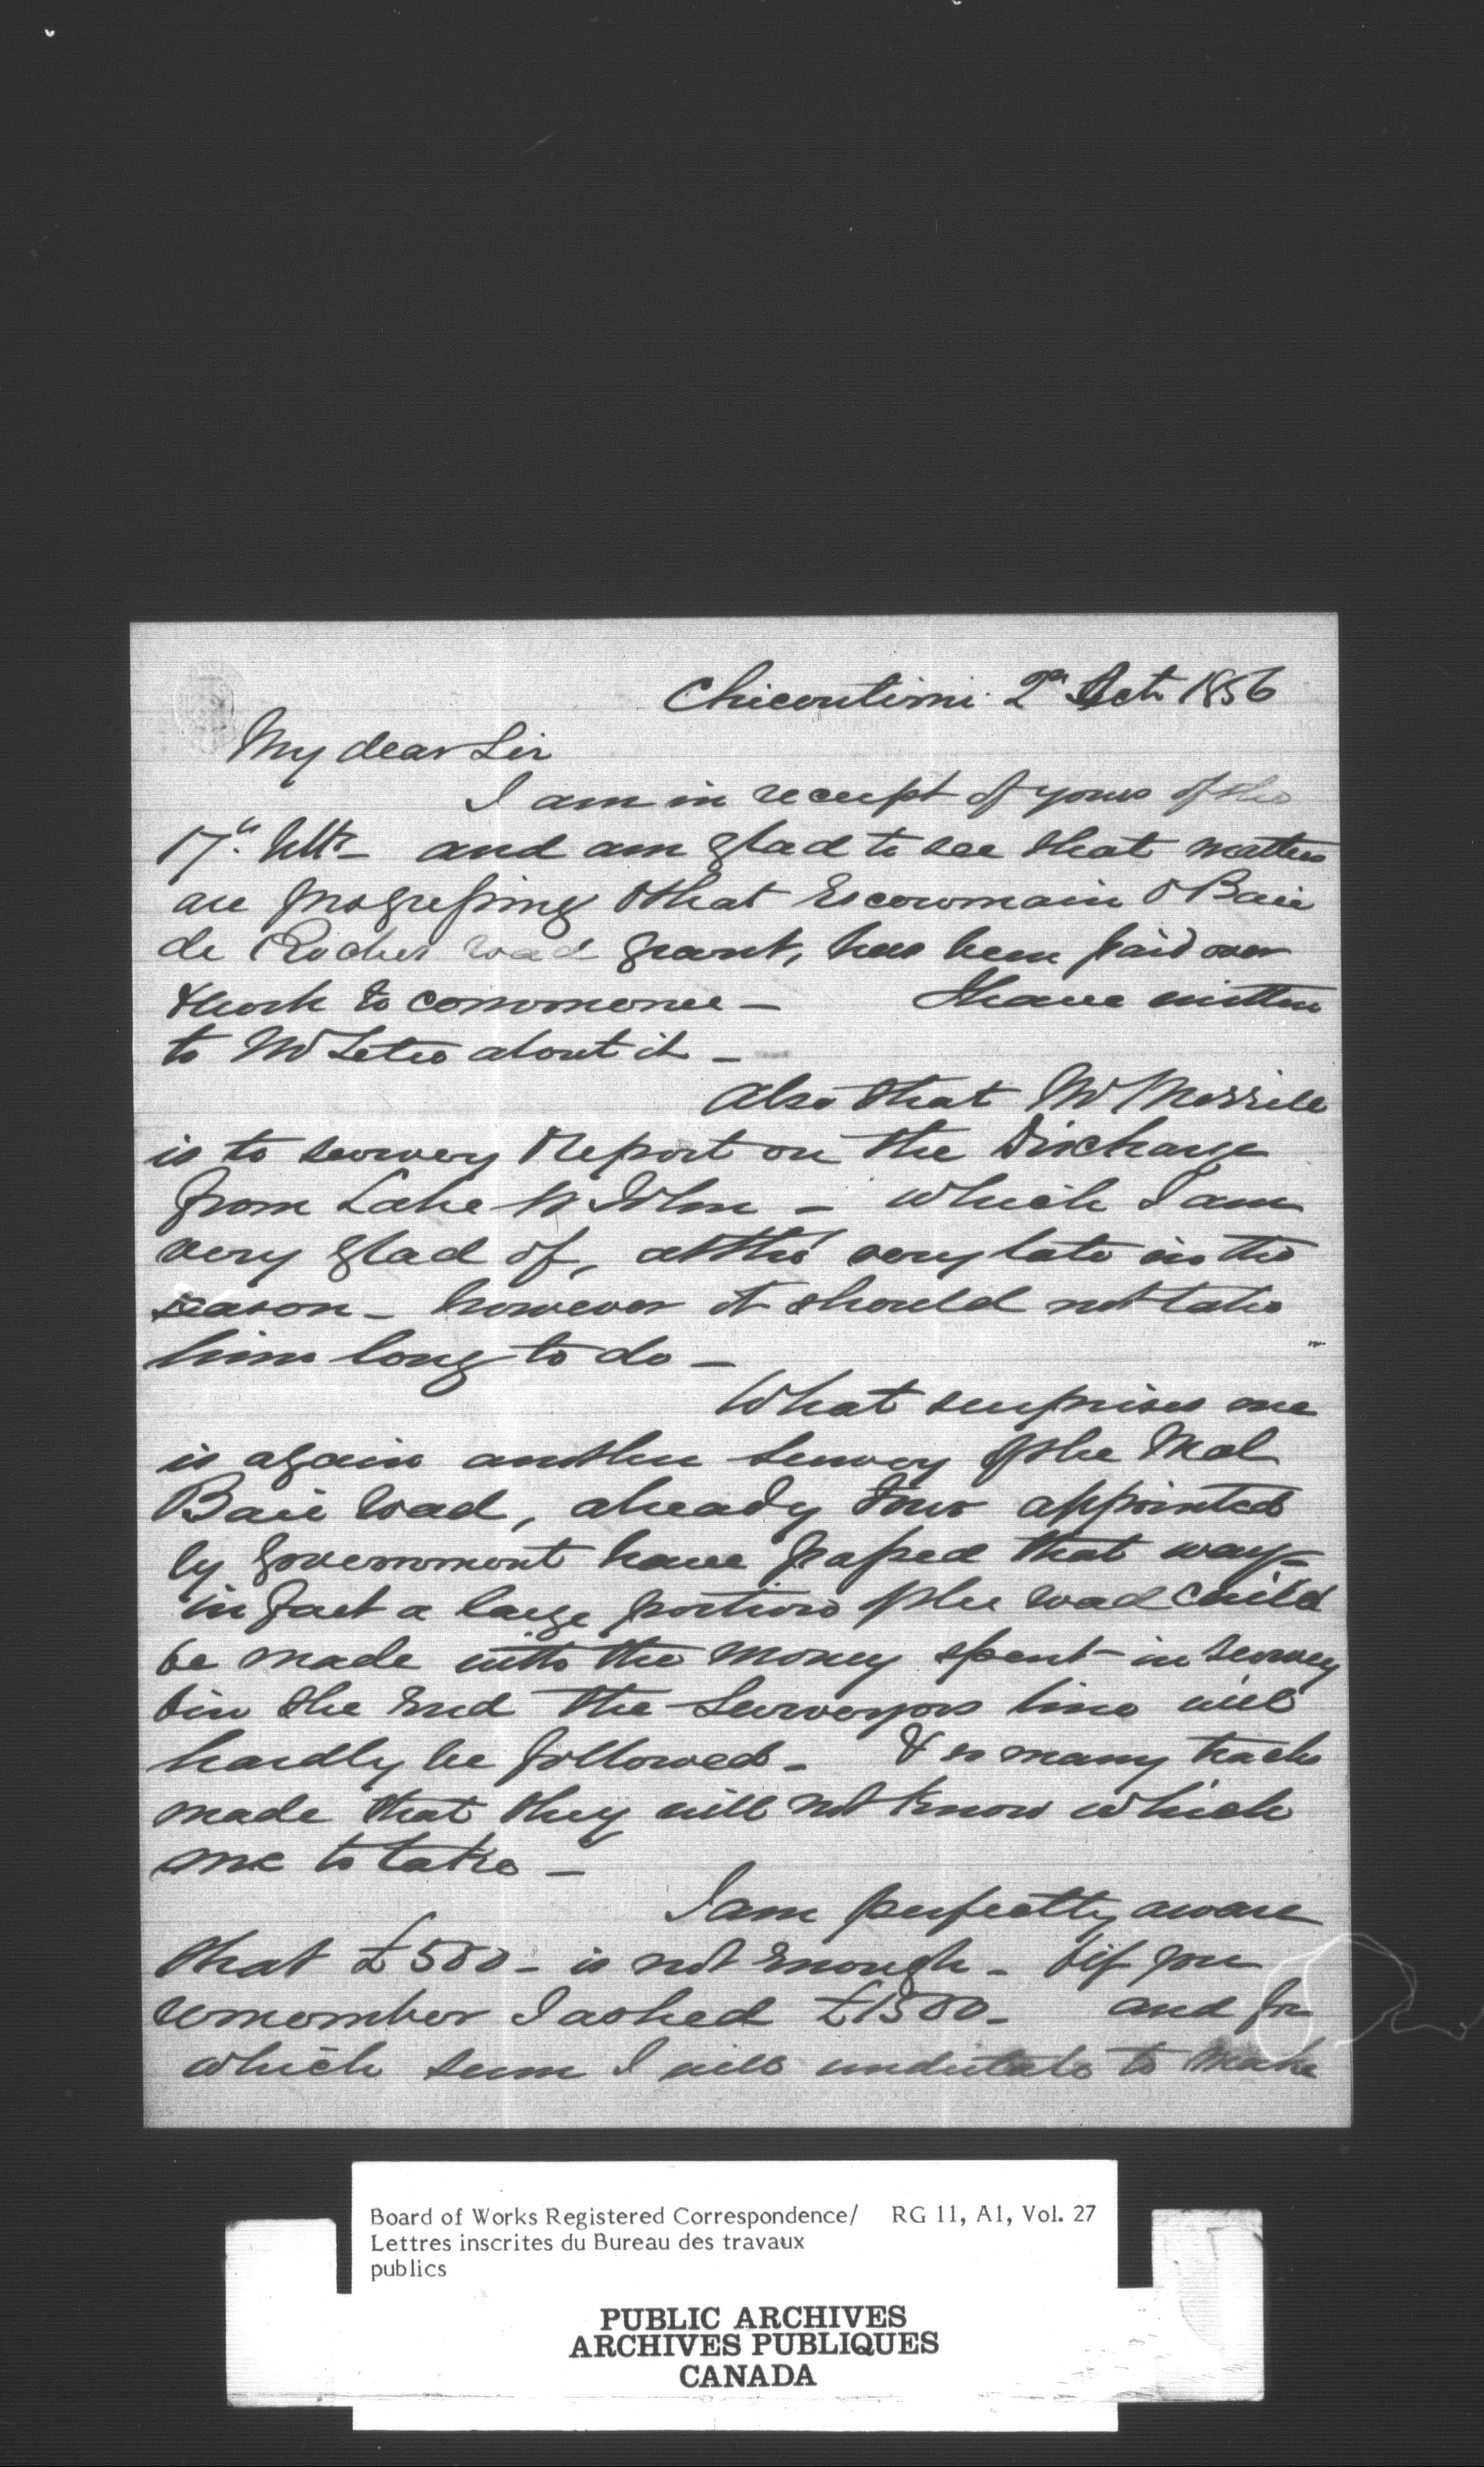 Chicoutimi 2nd Octr 1856
My dear Sir
I am in receipt of yours of the
17th Ulto_ and am glad to see that matters
are progressing & that Escoumain & Baie
de Rocher road grant, has been paid over
& work to commence _ I have written
to Mr about it _
Also that Mr Merrill
is to survey & report on the Discharge
from Lake St John _ which I am
very glad of, altho' very late in the
season _ however it should not take
him long to do _
What surprises me
is again another survey of the Mal
Baie road, already four appointed
by Government have passed that way _
in fact a large portion of the road could
be made with the money spent in survey
& in the End the Surveyors line will
hardly be followed _ & so many tracks
made that they will not know which
one to take _
I am perfectly aware
that £500 _ is not enough _ & if you
remember I asked £1500 _ and for
which sum I will undertake to make
Board of Works Registered Correspondence/ RG 11, A1, Vol. 27
Lettres inscrites du Bureau des travaux
publics
PUBLIC ARCHIVES
ARCHIVES PUBLIQUES
CANADA